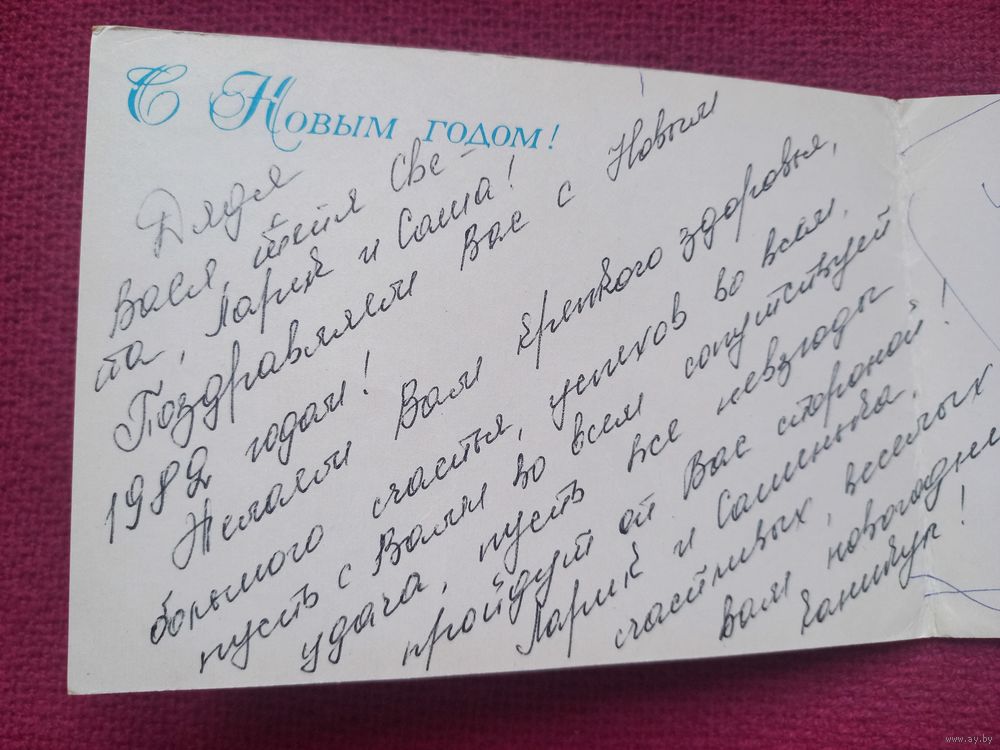 С Новым годом!
Дядя
Вася, тётя Све-
та, Ларик и Саша!
Поздравляем Вас с Новым
1982 годом!
Желаем Вам крепкого здоровья,
большого счастья, успехов во всем,
пусть с Вами во всем сопутствует
удача, пусть все невзгоды
пройдут от Вас стороной!
Ларик и Сашенька,
счастливых, веселых
вам новогодних
каникул!
www.ay.by